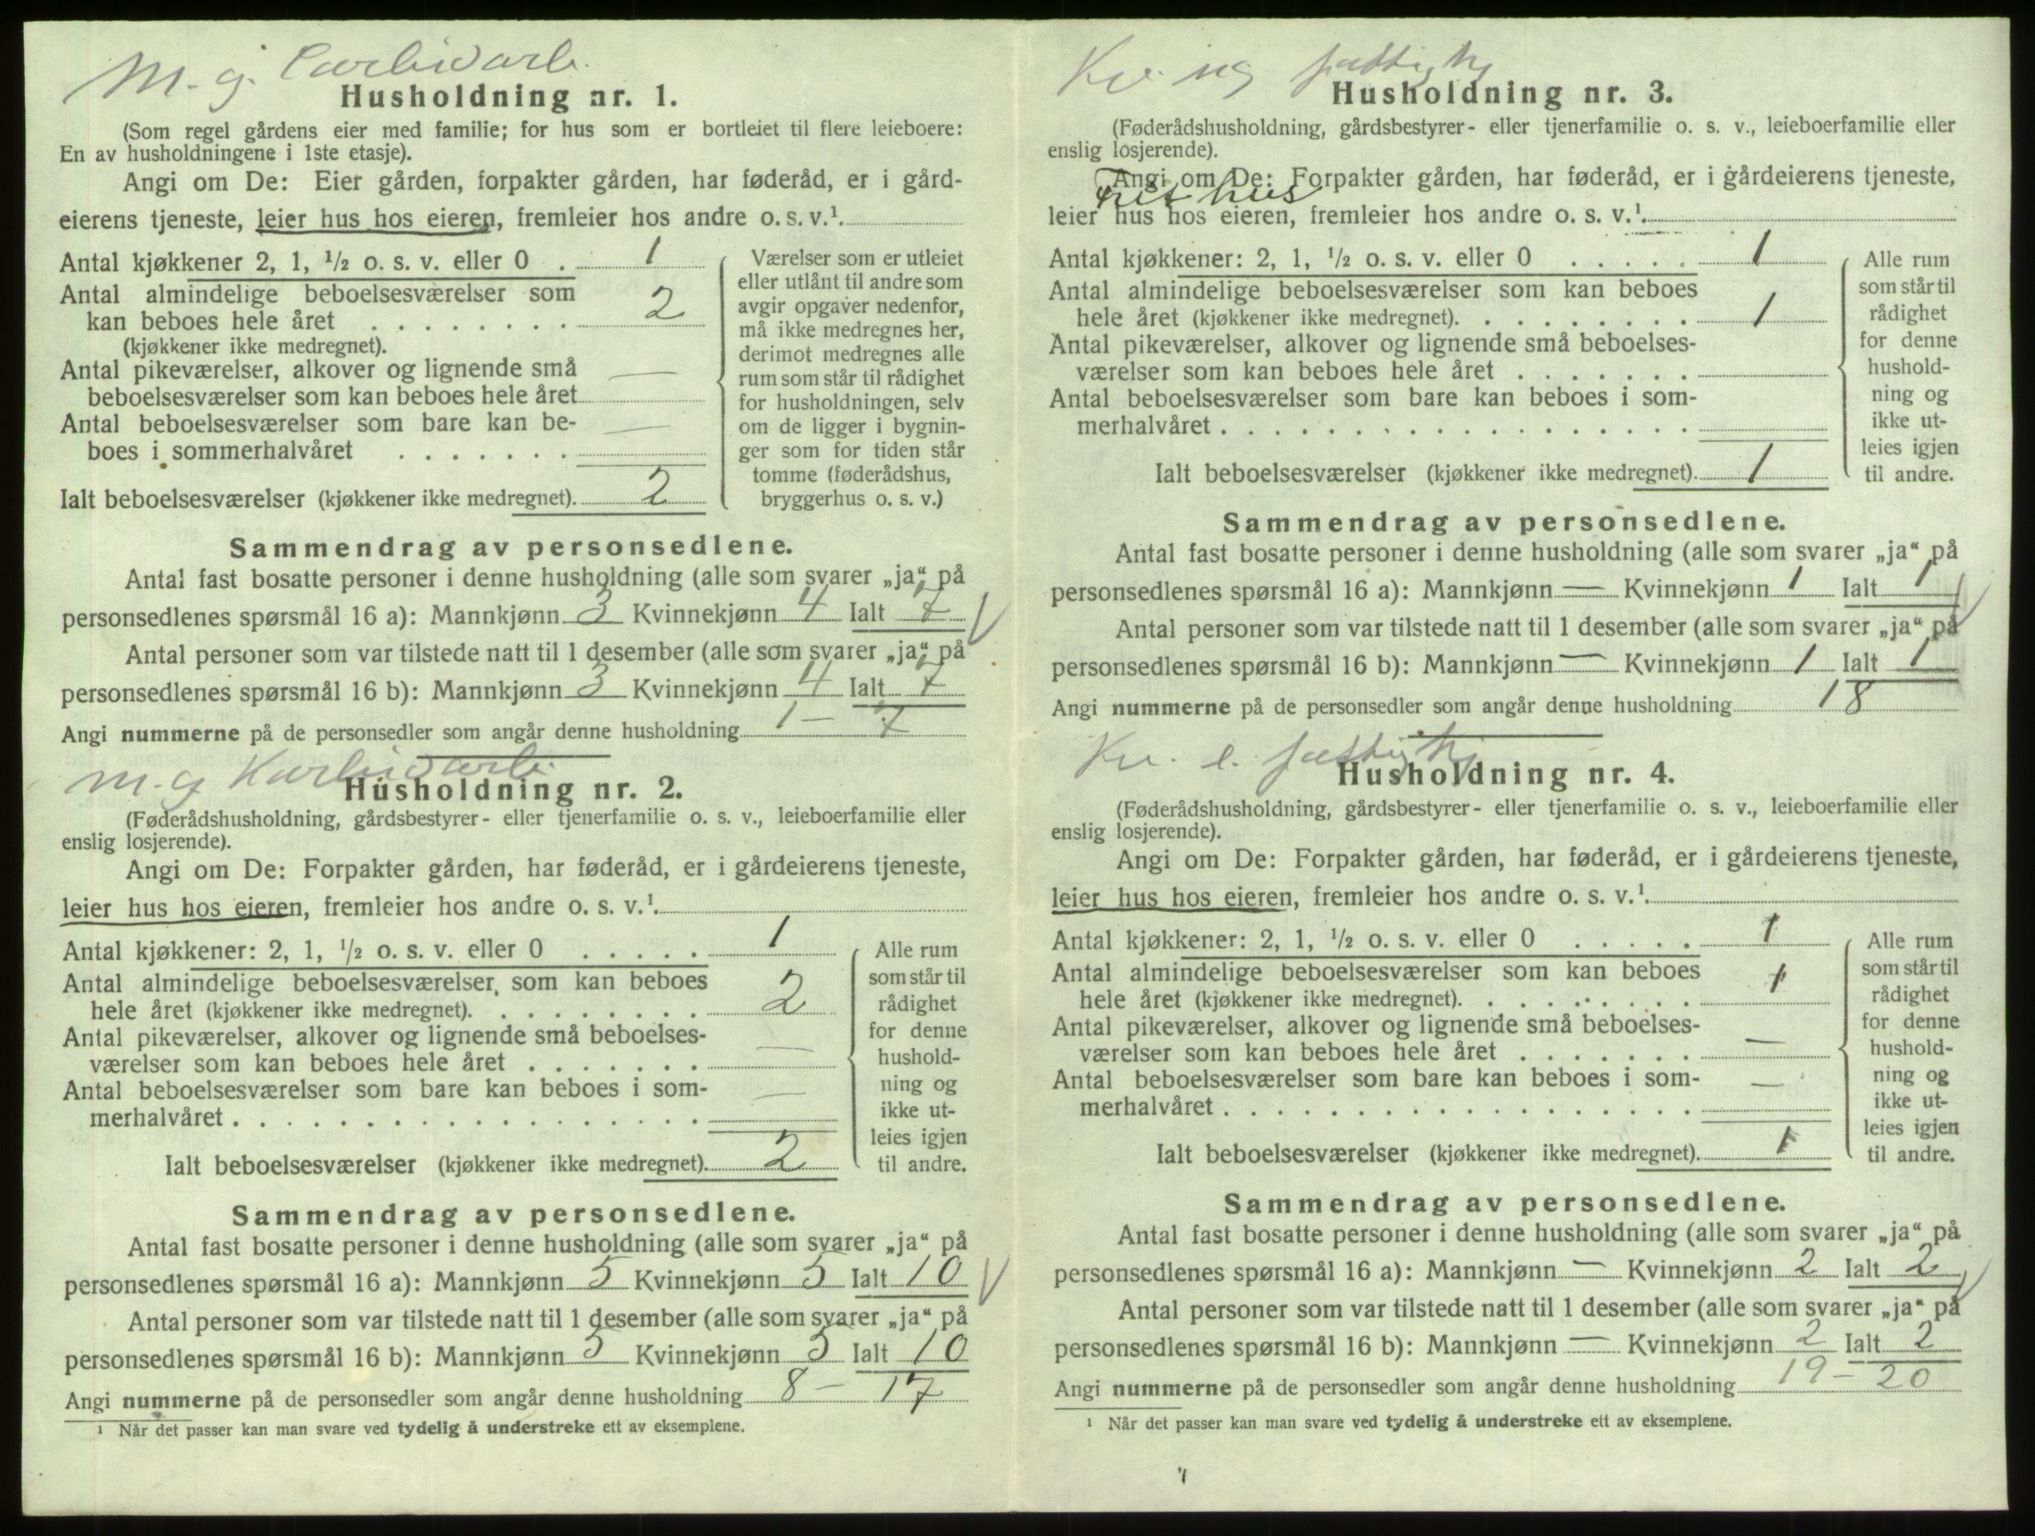 M. g. Carbidarb.
Husholdning nr. 1.
(Som regel gårdens eier med familie; for hus som er bortleiet til flere leieboere:
En av husholdningene i 1ste etasje).
Angi om De: Eier gården, forpakter gården, har føderåd, er i gård-
eierens tjeneste, leier hus hos eieren, fremleier hos andre o. s. v.¹.
Antal kjøkkener 2, 1, ½ o. s. v. eller 0 . 1
Antal almindelige beboelsesværelser som
kan beboes hele året . . . . . . . . 2
(kjøkkener ikke medregnet).
Antal pikeværelser, alkover og lignende små —
beboelsesværelser som kan beboes hele året
Antal beboelsesværelser som bare kan be- —
boes i sommerhalvåret . . . . . . .
Ialt beboelsesværelser (kjøkkener ikke medregnet). 2
Værelser som er utleiet
eller utlånt til andre som
avgir opgaver nedenfor,
må ikke medregnes her,
derimot medregnes alle
rum som står til rådighet
for husholdningen, selv
om de ligger i bygnin-
ger som for tiden står
tomme (føderådshus,
bryggerhus o. s. v.)
Sammendrag av personsedlene.
Antal fast bosatte personer i denne husholdning (alle som svarer „ja“ på
personsedlenes spørsmål 16 a): Mannkjønn 3 Kvinnekjønn 4 Ialt 7
Antal personer som var tilstede natt til 1 desember (alle som svarer „ja“ på
personsedlenes spørsmål 16 b): Mannkjønn 3 Kvinnekjønn 4 Ialt 7
Angi nummerne på de personsedler som angår denne husholdning 1 – 7
M. g. Karbidarb.
Husholdning nr. 2.
(Føderådshusholdning, gårdsbestyrer- eller tjenerfamilie o. s. v., leieboerfamilie eller
enslig losjerende).
Angi om De: Forpakter gården, har føderåd, er i gårdeierens tjeneste,
leier hus hos eieren, fremleier hos andre o. s. v.¹.
Antal kjøkkener: 2, 1, ½ o. s. v. eller 0 . . . . . 1
Antal almindelige beboelsesværelser som kan beboes
hele året (kjøkkener ikke medregnet). . . . . . . . . 2
Antal pikeværelser, alkover og lignende små beboelses- —
værelser som kan beboes hele året . . . . . . .
Antal beboelsesværelser som bare kan beboes i som- —
merhalvåret . . . . . . . . . . . . . . . . . .
Ialt beboelsesværelser (kjøkkener ikke medregnet). 2
Alle rum
som står til
rådighet
for denne
hushold-
ning og
ikke ut-
leies igjen
til andre.
Sammendrag av personsedlene.
Antal fast bosatte personer i denne husholdning (alle som svarer „ja“ på
personsedlenes spørsmål 16 a): Mannkjønn 5 Kvinnekjønn 5 Ialt 10
Antal personer som var tilstede natt til 1 desember (alle som svarer „ja“ på
personsedlenes spørsmål 16 b): Mannkjønn 5 Kvinnekjønn 5 Ialt 10
Angi nummerne på de personsedler som angår denne husholdning 8 – 17
¹ Når det passer kan man svare ved tydelig å understreke ett av eksemplene.
Kv. ug fattigh
Husholdning nr. 3.
(Føderådshusholdning, gårdsbestyrer- eller tjenerfamilie o. s. v., leieboerfamilie eller
enslig losjerende).
Angi om De: Forpakter gården, har føderåd, er i gårdeierens tjeneste,
frit hus
leier hus hos eieren, fremleier hos andre o. s. v.¹.
Antal kjøkkener: 2, 1, ½ o. s. v. eller 0 . . . . . 1
Antal almindelige beboelsesværelser som kan beboes
hele året (kjøkkener ikke medregnet). . . . . . . . . 1
Antal pikeværelser, alkover og lignende små beboelses-
værelser som kan beboes hele året . . . . . . .
Antal beboelsesværelser som bare kan beboes i som-
merhalvåret . . . . . . . . . . . . . . . . . .
Ialt beboelsesværelser (kjøkkener ikke medregnet). 1
Alle rum
som står til
rådighet
for denne
hushold-
ning og
ikke ut-
leies igjen
til andre.
Sammendrag av personsedlene.
Antal fast bosatte personer i denne husholdning (alle som svarer „ja“ på
personsedlenes spørsmål 16 a): Mannkjønn — Kvinnekjønn 1 Ialt 1
Antal personer som var tilstede natt til 1 desember (alle som svarer „ja“ på
personsedlenes spørsmål 16 b): Mannkjønn — Kvinnekjønn 1 Ialt 1
Angi nummerne på de personsedler som angår denne husholdning 18
Kv. e. fattigh
Husholdning nr. 4.
(Føderådshusholdning, gårdsbestyrer- eller tjenerfamilie o. s. v., leieboerfamilie eller
enslig losjerende).
Angi om De: Forpakter gården, har føderåd, er i gårdeierens tjeneste,
leier hus hos eieren, fremleier hos andre o. s. v.¹.
Antal kjøkkener: 2, 1, ½ o. s. v. eller 0 . . . . . 1
Antal almindelige beboelsesværelser som kan beboes
hele året (kjøkkener ikke medregnet). . . . . . . . . 1
Antal pikeværelser, alkover og lignende små beboelses- —
værelser som kan beboes hele året . . . . . . .
Antal beboelsesværelser som bare kan beboes i som- —
merhalvåret . . . . . . . . . . . . . . . . . .
Ialt beboelsesværelser (kjøkkener ikke medregnet). 1
Alle rum
som står til
rådighet
for denne
hushold-
ning og
ikke ut-
leies igjen
til andre.
Sammendrag av personsedlene.
Antal fast bosatte personer i denne husholdning (alle som svarer „ja“ på
personsedlenes spørsmål 16 a): Mannkjønn — Kvinnekjønn 2 Ialt 2
Antal personer som var tilstede natt til 1 desember (alle som svarer „ja“ på
personsedlenes spørsmål 16 b): Mannkjønn — Kvinnekjønn 2 Ialt 2
Angi nummerne på de personsedler som angår denne husholdning 19 – 20
¹ Når det passer kan man svare ved tydelig å understreke ett av eksemplene.